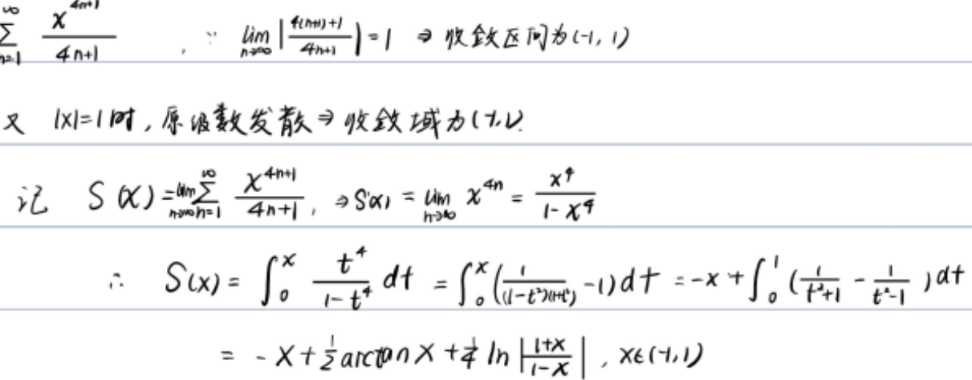 ∑_{n=1}^{∞} x^{4n+1}/(4n+1) , ∵ lim_{n→∞} |(4(n+1)+1)/(4n+1)| = 1 ⇒ 收敛区间为(-1, 1)
又 |x|=1时, 原级数发散 ⇒ 收敛域为(-1,1).
记 S(x) = lim_{n→∞} ∑_{n=1}^{∞} x^{4n+1}/(4n+1), ⇒ S'(x) = lim_{n→∞} x^{4n} = x^4/(1-x^4)
∴ S(x) = ∫_0^x t^4/(1-t^4) dt = ∫_0^x (1/((1-t²)(1+t²)) -1)dt = -x + ∫_0^1 (1/(t²+1) - 1/(t²-1))dt
= -x + 1/2 arctan x + 1/4 ln |(1+x)/(1-x)| , x∈(-1,1)